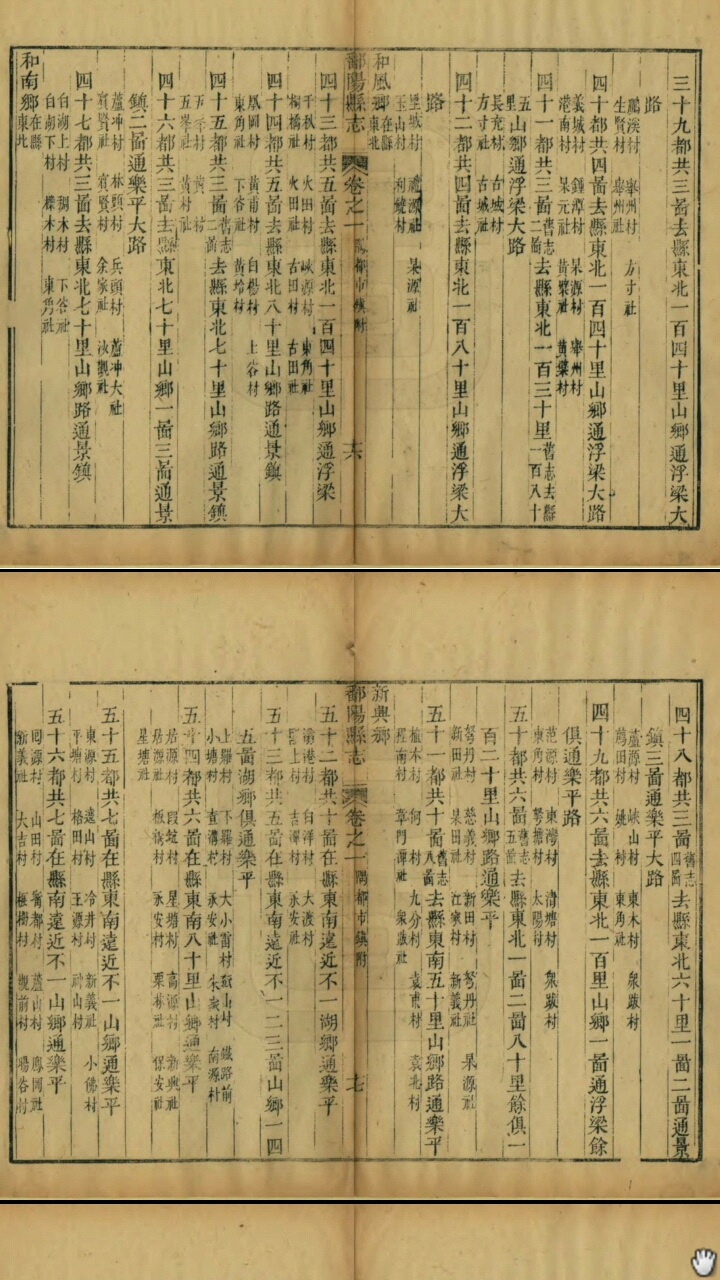 三十九都共三啚去縣東北一百四十里山鄉通浮梁大
路
生賢村 方寸社
四十都共四啚去縣東北一百四十里山鄉通浮梁大路
義城村 鍾潭村 杲源村
港南村 杲元社
四十一都共三啚舊志二啚去縣東北一百三十里舊志去縣一百八十
五里山鄉通浮梁大路
長充村 古城村
方寸社 古城社
四十二都共四啚去縣東北一百八十里山鄉通浮梁大
路
杲源社
玉山村
和風鄉在縣東北
鄱陽縣志 卷之一 隅都市鎮附 十六
四十三都共五啚去縣東北一百四十里山鄉通浮梁
千秋村 火田村 峽源村 東角社
桐橋社 火田社 古田村 古田社
四十四都共五啚去縣東北八十里山鄉路通景鎮
鳳岡村 黃甫村 白楊村 上谷村
東角社 下谷社
四十五都共三啚舊志二啚去縣東北七十里山鄉路通景鎮
五峯社 黃村社
四十六都共三啚去縣東北七十里山鄉一啚三啚通景
鎮二啚通樂平大路
蘆冲村 林頭村 兵頭村 蘆冲大社
賓賢社 賓賢村 余家社
四十七都共三啚去縣東北七十里山鄉路通景鎮
白湖上村 櫚木村 下谷社
白南下村 櫟木村 東角社
和南鄉在縣東北
四十八都共三啚舊志四啚去縣東北六十里一啚二啚通景
鎮三啚通樂平大路
蘆源村 峽山村 東木村
東角社
四十九都共六啚去縣東北一百里山鄉一啚通浮梁餘
俱通樂平路
范源村 東灣村 清塘村
東角村 太陽村
五十都共六啚舊志五啚去縣東北一啚二啚八十里餘俱一
百二十里山鄉路通樂平
慈義村 新田村 杲源社
新田村 杲田社 江家村 新義社
五十一都共十啚舊志八啚去縣東南五十里山鄉路通樂平
植木村 何村 九分村 袁甫村 袁北村
程南村 章門潭社
新興鄉
鄱陽縣志 卷之一 隅都市鎮附 十七
五十二都共十啚在縣東南遠近不一湖鄉通樂平
湖港村 白洋村 大渡村
吉潭村 永安社
五十三都共五啚在縣東南遠近不一一二三啚山鄉一四
五啚湖鄉俱通樂平
上羅村 下羅村 大小雷村 鐵路前
小塘村 永安社 南源村
五十四都共六啚在縣東南八十里山鄉通樂平
居源村 段坑村 星塘村 高源村 新興社
居源社 板橋村 永安村 栗林社 保安社
星塘社
五十五都共七啚在縣東南遠近不一山鄉通樂平
東源村 遠山村 冷井村 新義社 小佛村
平塘村 格田村 王源村 神山村
五十六都共七啚在縣南遠近不一山鄉通樂平
山田村 蘆山村 鳳岡社
新義社 大吉村 楓樹村 觀前村 暘谷村